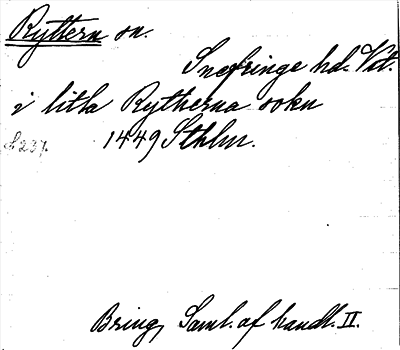 Ryttern sn.
Snefringe hd. Vstm.
i litla Rytherna sokn
s 237. 1449 Sthlm.
Bring, Saml. af handl. II.